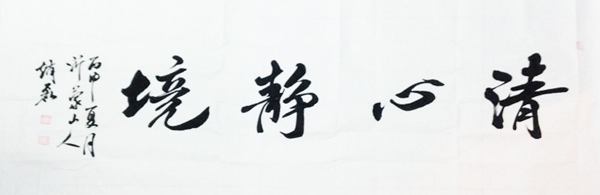 清心静境
丙申夏月
沂蒙山人